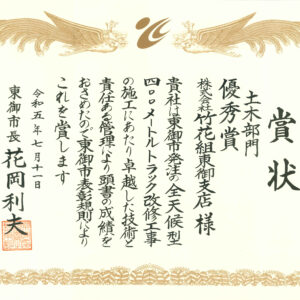 賞状
土木部門
優秀賞
株式会社竹花組東御支店 様
貴社は東御市発注の全天候型
四〇〇メートルトラック改修工事
の施工にあたり卓越した技術と
責任ある管理により頭書の成績を
おさめたので東御市表彰規則により
これを賞します
令和五年七月十一日
東御市長 花岡利夫